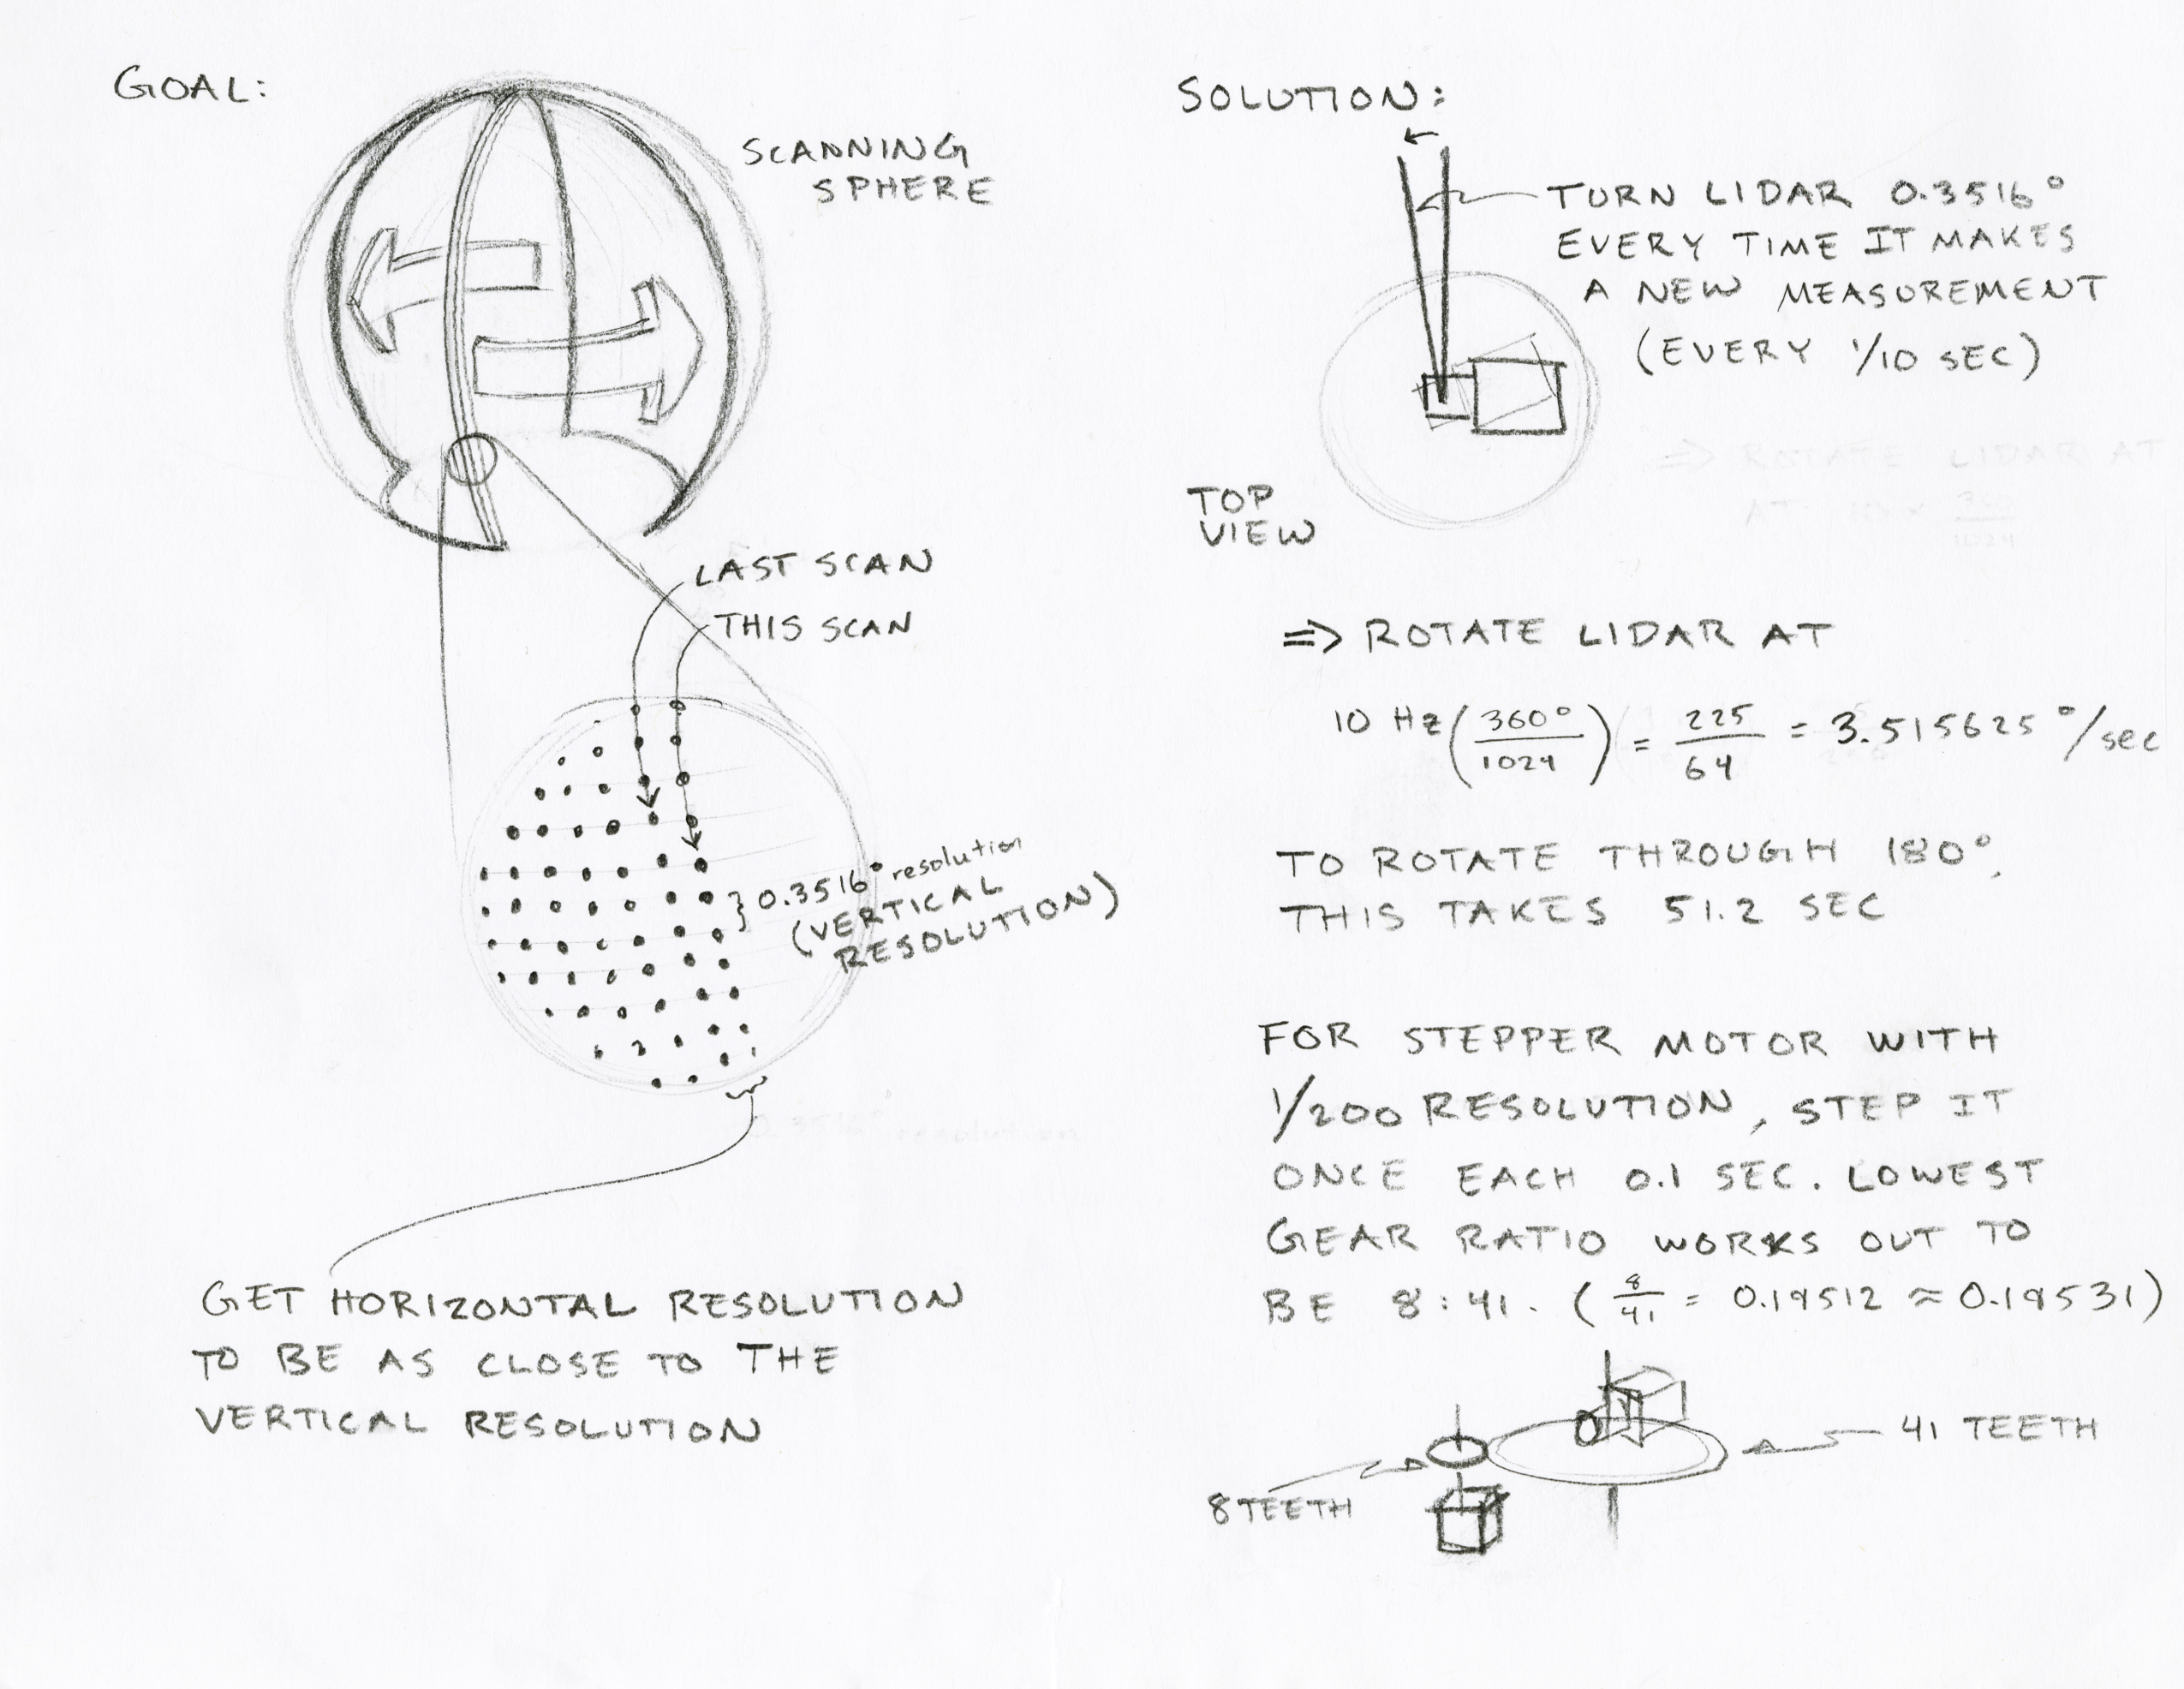 GOAL:
SCANNING
SPHERE
LAST SCAN
THIS SCAN
} 0.3516° resolution
(VERTICAL
RESOLUTION)
GET HORIZONTAL RESOLUTION
TO BE AS CLOSE TO THE
VERTICAL RESOLUTION
SOLUTION:
TURN LIDAR 0.3516°
EVERY TIME IT MAKES
A NEW MEASUREMENT
(EVERY 1/10 SEC)
⇒ ROTATE LIDAR AT
AT
360
1024
TOP
VIEW
⇒ ROTATE LIDAR AT
10 Hz (360°/1024) = 225/64 = 3.515625 °/sec
TO ROTATE THROUGH 180°,
THIS TAKES 51.2 SEC
FOR STEPPER MOTOR WITH
1/200 RESOLUTION, STEP IT
ONCE EACH 0.1 SEC. LOWEST
GEAR RATIO WORKS OUT TO
BE 8:41. (8/41 = 0.19512 ≈ 0.19531)
41 TEETH
8 TEETH